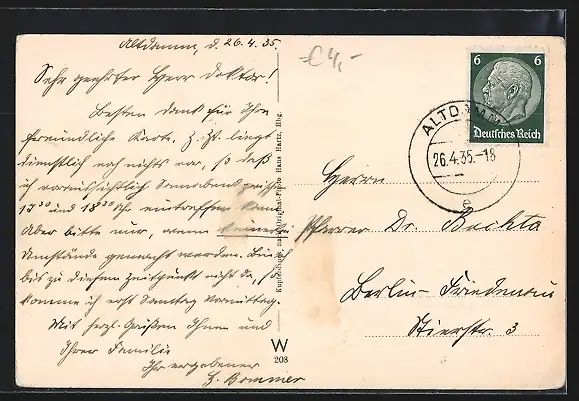 Altdamm, d. 26.4.35.
Sehr geehrter Herr Doktor!
Besten Dank für Ihre
freundliche Karte. Z. Zt. liegt
dienstlich noch nichts vor, so daß
ich voraussichtlich Sonnabend zwischen
17³⁰ und 18⁰⁰ Uhr eintreffen kann.
Aber bitte nur, wenn keinerlei
Umstände gemacht werden. Bin ich
bis zu diesem Zeitpunkt nicht da, so
komme ich erst Sonntag Vormittag.
Mit herzl. Grüßen Ihnen und
Ihrer Familie
Ihr ergebener
Bommer
€4,-
Kupfertiefdruck nach Original-Photo Hans Hartz, Hbg.
W
208
6 6
Deutsches Reich
ALTDAMM
26.4.35.-18
e
Herrn
Pfarrer Dr. Bachta
Berlin-Friedenau
Stierstr. 3